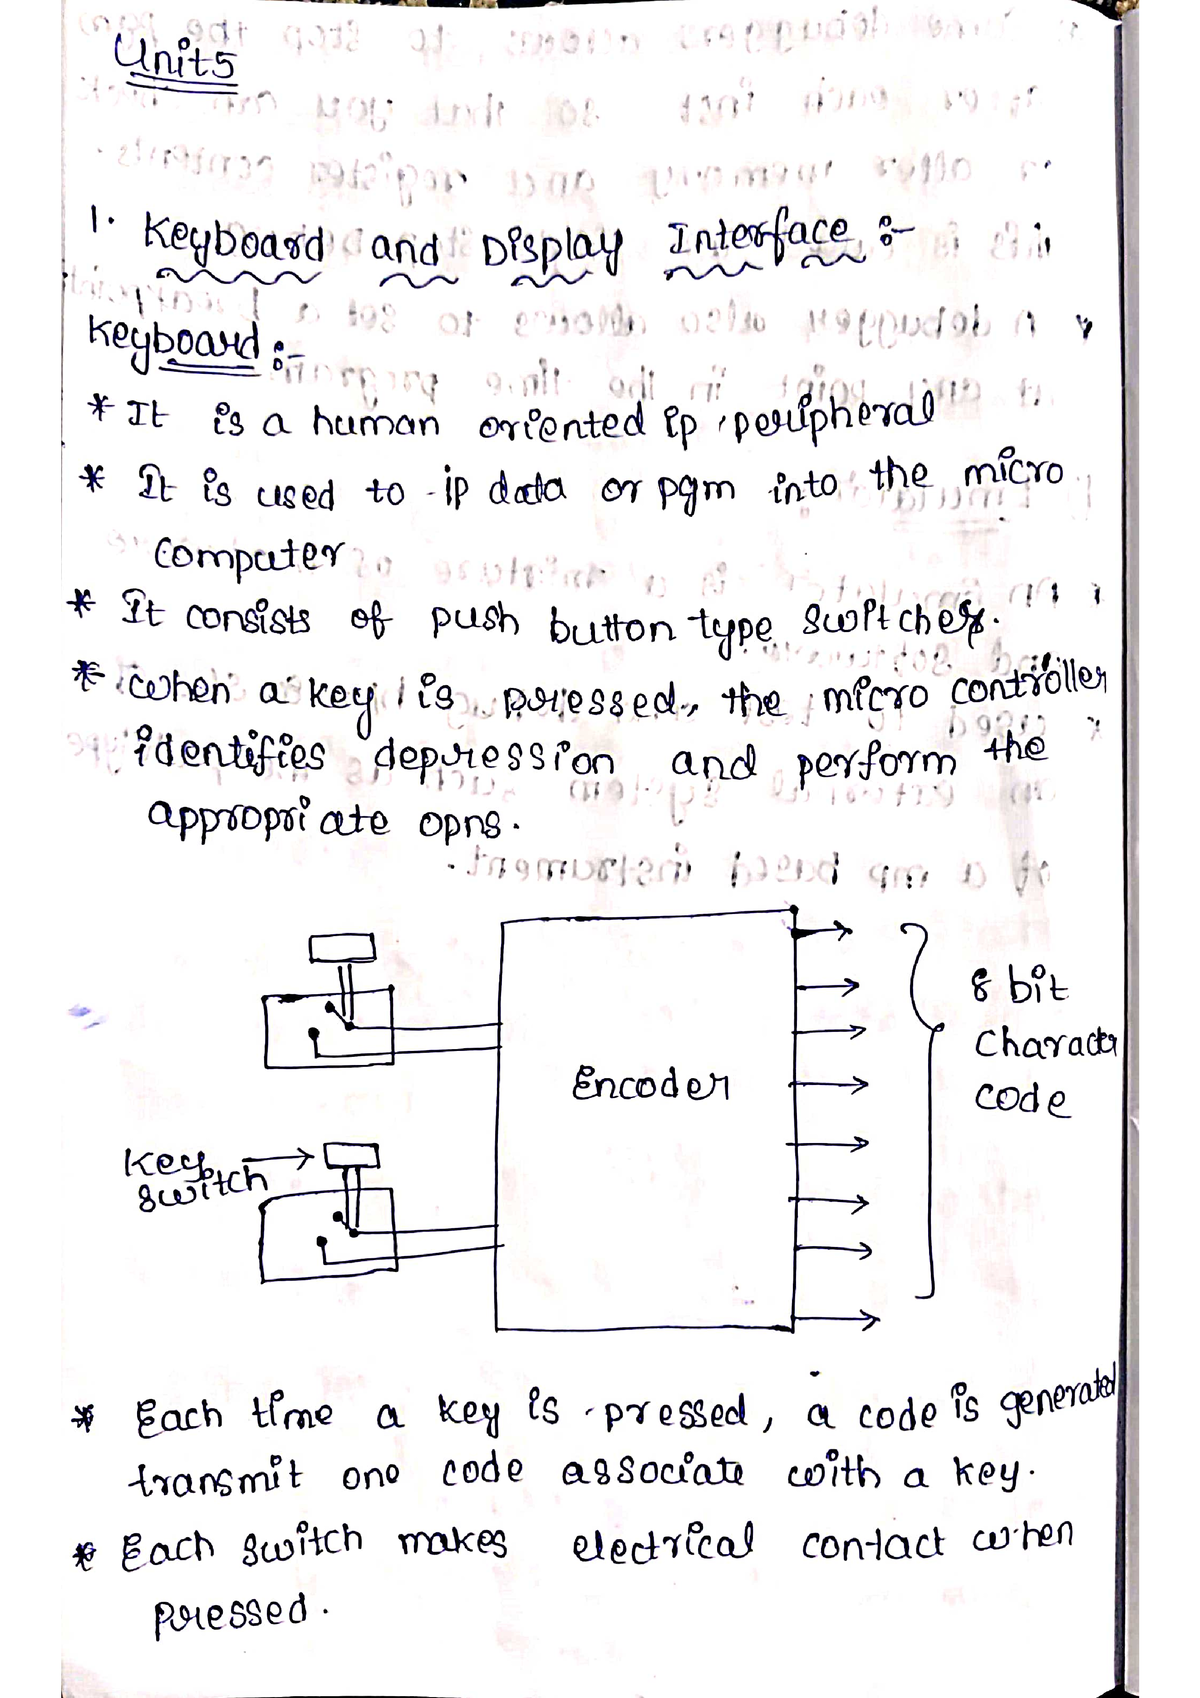 Unit5
1. Keyboard and Display Interface :-
Keyboard :-
* It is a human oriented ip peripheral
* It is used to ip data or pgm into the micro
computer
* It consists of push button type switches.
* when a key is pressed, the micro controller
identifies depression and perform the
appropriate opns.
Encoder
8 bit
Character
code
Key
switch
* Each time a key is pressed, a code is generated
transmit one code associate with a key.
* Each switch makes electrical contact when
pressed.